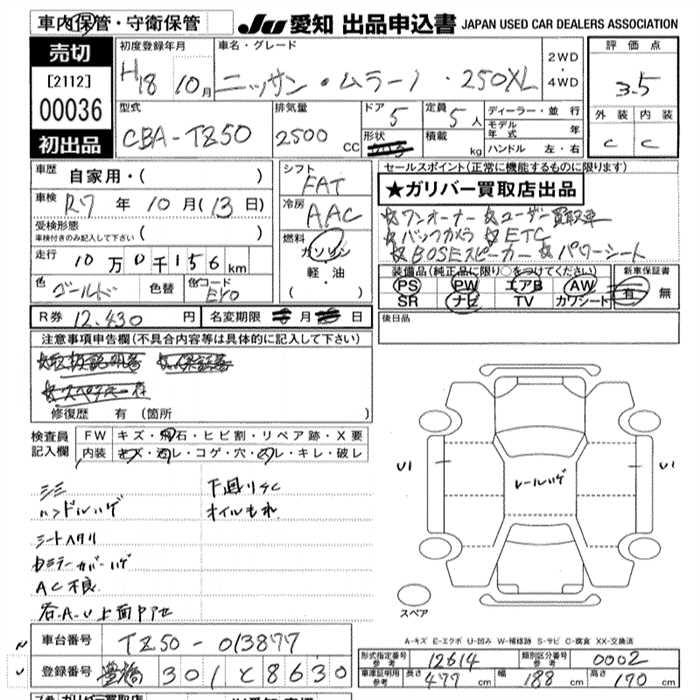 車内保管・守衛保管
JU 愛知 出品申込書 JAPAN USED CAR DEALERS ASSOCIATION
売切
[2112]
00036
初出品
初度登録年月
H18 10月
車名・グレード
ニッサン・ムラーノ・250XL
2WD
・
4WD
評価点
3.5
外装 内装
C C
型式
CBA-TZ50
排気量
2500 CC
ドア
5
形状
定員
5人
積載
kg
ディーラー・並行
モデル年式 年
ハンドル 左・右
車歴
自家用・( )
車検
R7年10月(13日)
受検形態
車検付きのみ記入して下さい ( )
走行
10万0千156km
色
ゴールド
色替
色コード
EY0
シフト
FAT
冷房
AAC
燃料
ガソリン
軽・油
( )
セールスポイント(正常に機能するものに限ります)
★ガリバー買取店出品
☆ワンオーナー ☆ユーザー買取車
☆バックカメラ ☆ETC
☆BOSEスピーカー ☆パワーシート
装備品(純正品に限り○をつけてください)
PS PW エアB AW
SR ナビ TV カワシート
新車保証書
有・無
R券 12,430円
名変期限 月 日
後日品
注意事項申告欄(不具合内容等は具体的に記入して下さい)
修復歴 有(箇所 )
検査員記入欄
FW キズ・飛石・ヒビ割・リペア跡・X要
内装 キズ・汚レ・コゲ・穴・スレ・キレ・破レ
シミ
ハンドルハゲ
シートヘタリ
AC不良
下廻りサビ
オイルもれ
U1
レールハゲ
U1
スペア
A-キズ E-エクボ U-凹み W-補修跡 S-サビ C-腐食 XX-交換済
車台番号 TZ50-013877
登録番号 豊橋 301 と 8630
形式指定番号 参考 12614
類別区分番号 参考 0002
車庫証明用 参考 長さ 477 cm 幅 188 cm 高さ 170 cm